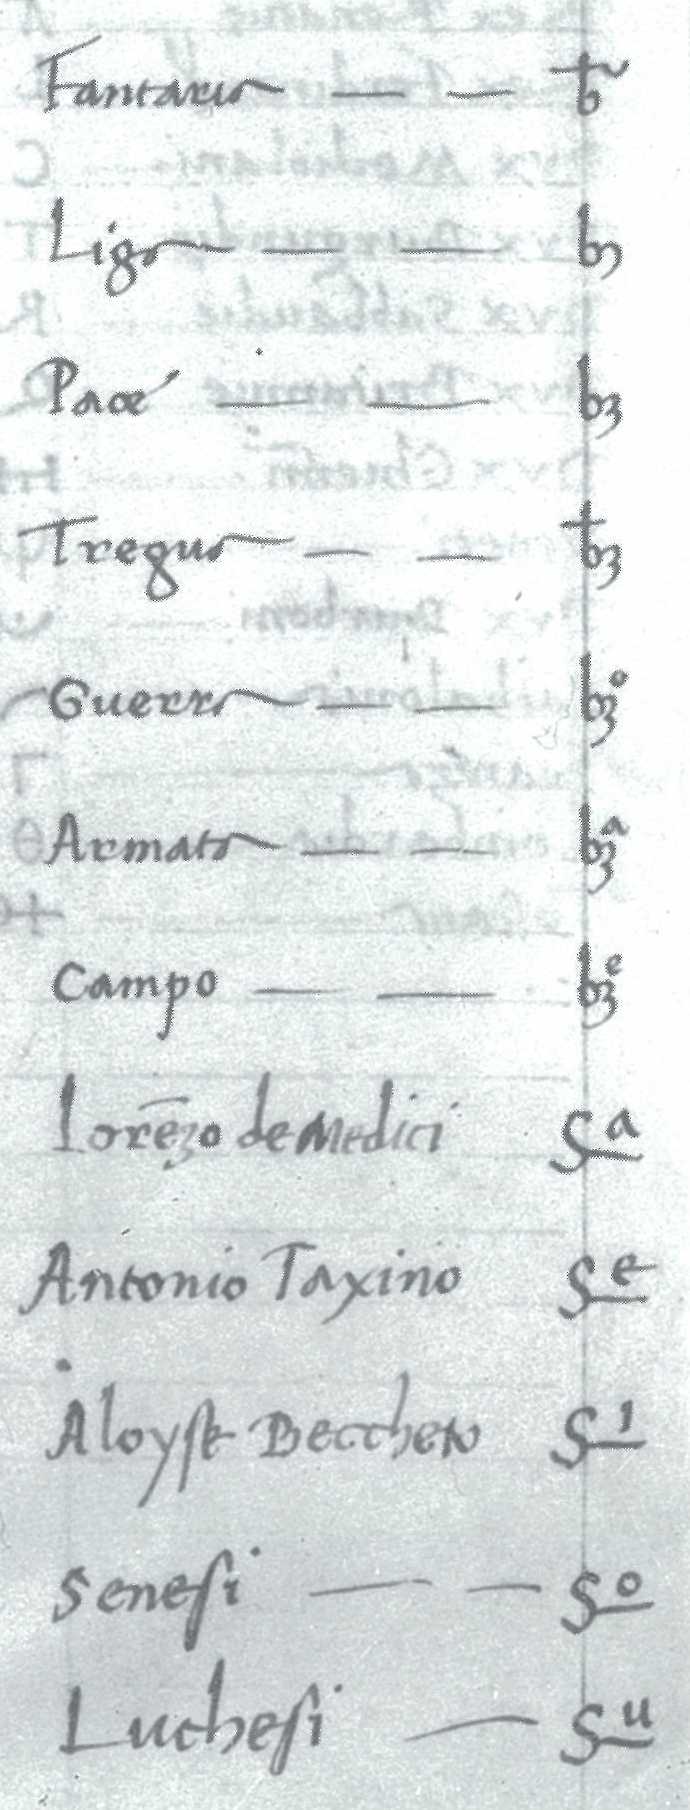 Fantaria — — b
Liga — — — b3
Pace — — b3
Tregua — — b3
Guerra — — b3º
Armata — — b3ª
Campo — — b3ᵉ
Lorẽzo de Medici Sᵃ
Antonio Taxino Sᵉ
Aloyse Beccheto S¹
Senesi — — Sº
Luchesi — Sᵘ